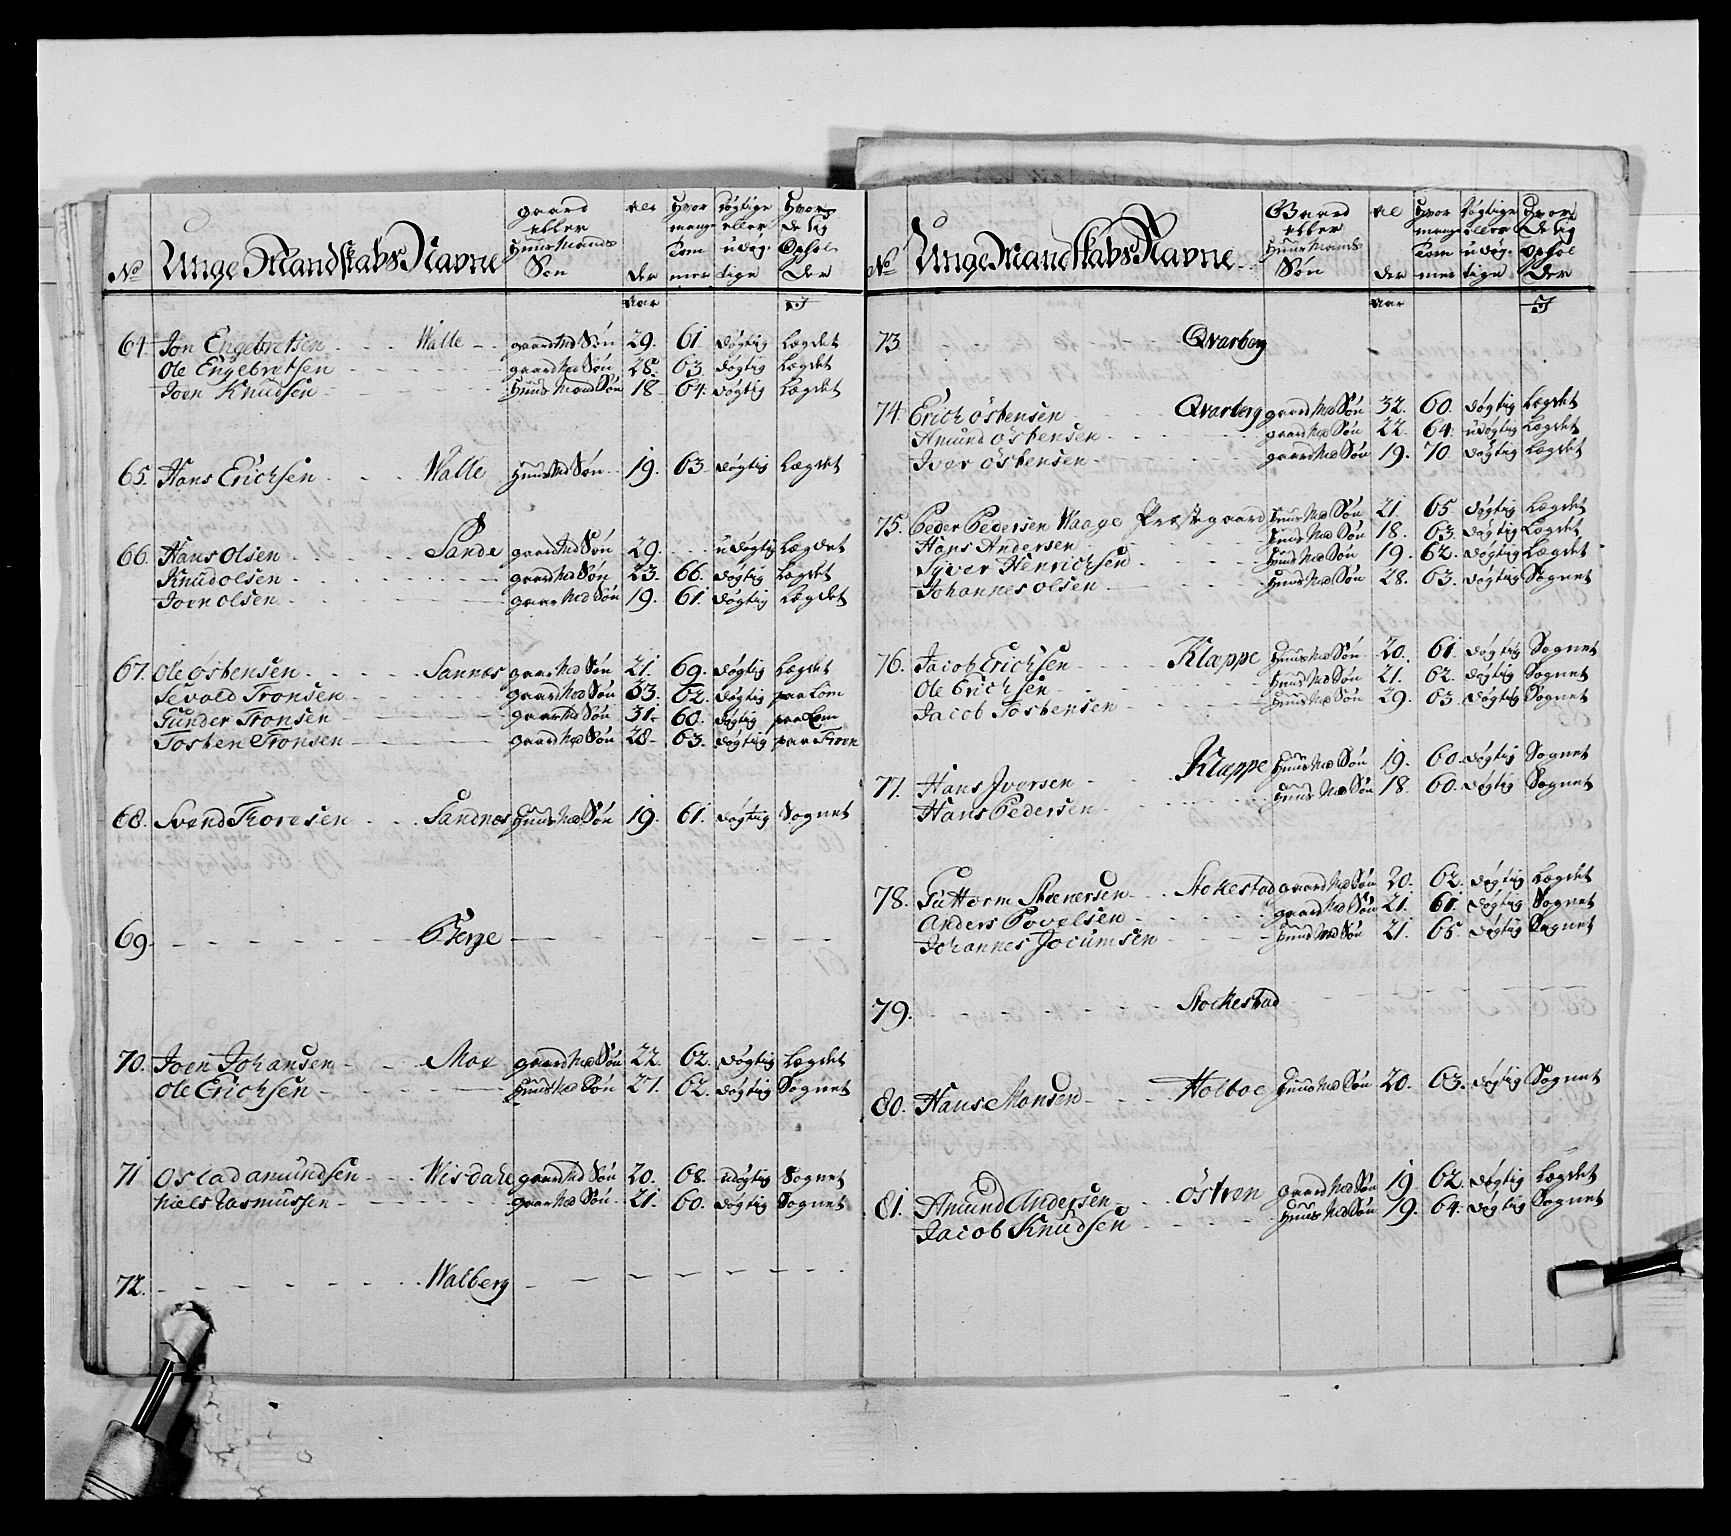 No Unge Mandskabs Navne gaard eller Huus Mands Søn Alder Hvor mange Tommer Døgtige eller udøgtige Hvor de sig Opholder
Aar I
64. Jon Engebretsen Walle gaard Md Søn 29. 61. døgtig Lægdet
Ole Engebretsen gaard Md Søn 28. 63. døgtig Lægdet
Joen Knudsen Huus Mand Søn 18. 64. døgtig Lægdet
65. Hans Erichsen Walle Huus Md Søn 19. 63. døgtig Lægdet
66. Hans Olsen Sande gaard Md Søn 29. udøgtig Lægdet
Knud olsen gaard Md Søn 23. 66. døgtig Lægdet
Joen olsen gaar Md Søn 19. 61. døgtig Lægdet
67. Ole Østensen Sannes gaar Md Søn 21. 69. døgtig Lægdet
Sevald Tronsen gaard Md Søn 33. 62. døgtig paa Lom
Gunder Tronsen gaar Md Søn 31. 60. døgtig paa Lom
Tosten Tronsen gaard Md Søn 28. 63. døgtig paa Fron
68. Svend Thoresen Sandnes Huus Md Søn 19. 61. døgtig Sognet
69. Berge
70. Joen Johansen Moe gaard Md Søn 22. 62. døgtig Lægdet
Ole Erichsen Huus Md Søn 21. 62. døgtig Sognet
71 Oslad amundsen Wisdahl gaard Md Søn 20. 68. udøgtig Sognet
Niels Rasmussen gaar Md Søn 21. 60. døgtig Sognet
72. Walberg
No Unge Mandskabs Navne Gaard eller Huus Mands Søn Alder Hvor mange Tommer Døgtige eller udøgtige Hvor de sig Opholder
Aar I
73 Qvarberg
74. Erich Østensen Qvarberg gaard Md Søn 32. 60. døgtig Lægdet
Amund Østensen gaard Md Søn 22. 64. udøgtig Lægdet
Iver Østensen gaard Md Søn 19. 70 døgtig Lægdet
75. Peder Pedersen Waage Præstegaard Huus Md Søn 21. 65. døgtig Lægdet
Hans Andersen Huus Md Søn 18. 63. døgtig Lægdet
Syver Henrichsen Huus Md Søn 19. 62. døgtig Lægdet
Johannes olsen Huus Md Søn 28. 63. døgtig Sognet
76. Jacob Erichsen Klappe Huus Md Søn 20. 61. døgtig Sognet
Ole Erichsen Huus Md Søn 21. 62. døgtig Sognet
Jacob Tostensen Huus Md Søn 29. 63. døgtig Sognet
77. Hans Iversen Klappe Huus Md Søn 19. 60. døgtig Sognet
Hans Pedersen Huus Md Søn 18. 60. døgtig Sognet
78. Guttorm Steenersen Stokestad gaard Md Søn 20. 62. døgtig Lægdet
Anders Povelsen gaard Md Søn 21. 61. døgtig Sognet
Johannes Jocumsen Huus Md Søn 21. 65. døgtig Sognet
79. Stockestad
80. Hans Monsen Holboe Huus Md Søn 20. 63. døgtig Sognet
81. Amund Andersen Østren gaard Md Søn 19. 62. døgtig Lægdet
Jacob Knudsen Huus Md Søn 19. 64. døgtig Sognet